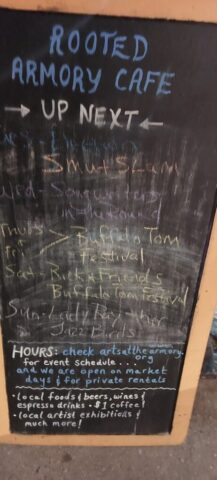 ROOTED
ARMORY CAFE
→ UP NEXT ←
Smut Slam
Wed - Songwriters
in the Round
Thurs
Fri
Buffalo Tom
Festival
Sat - Rick + Friends
Buffalo Tom Festival
Sun - Lady Kay + her
Jazz Birds
HOURS: check artsatthearmory.
org
for event schedule...
and we are open on market
days & for private rentals
• local foods & beers, wines &
espresso drinks - $1 coffee!
• local artist exhibitions &
much more!